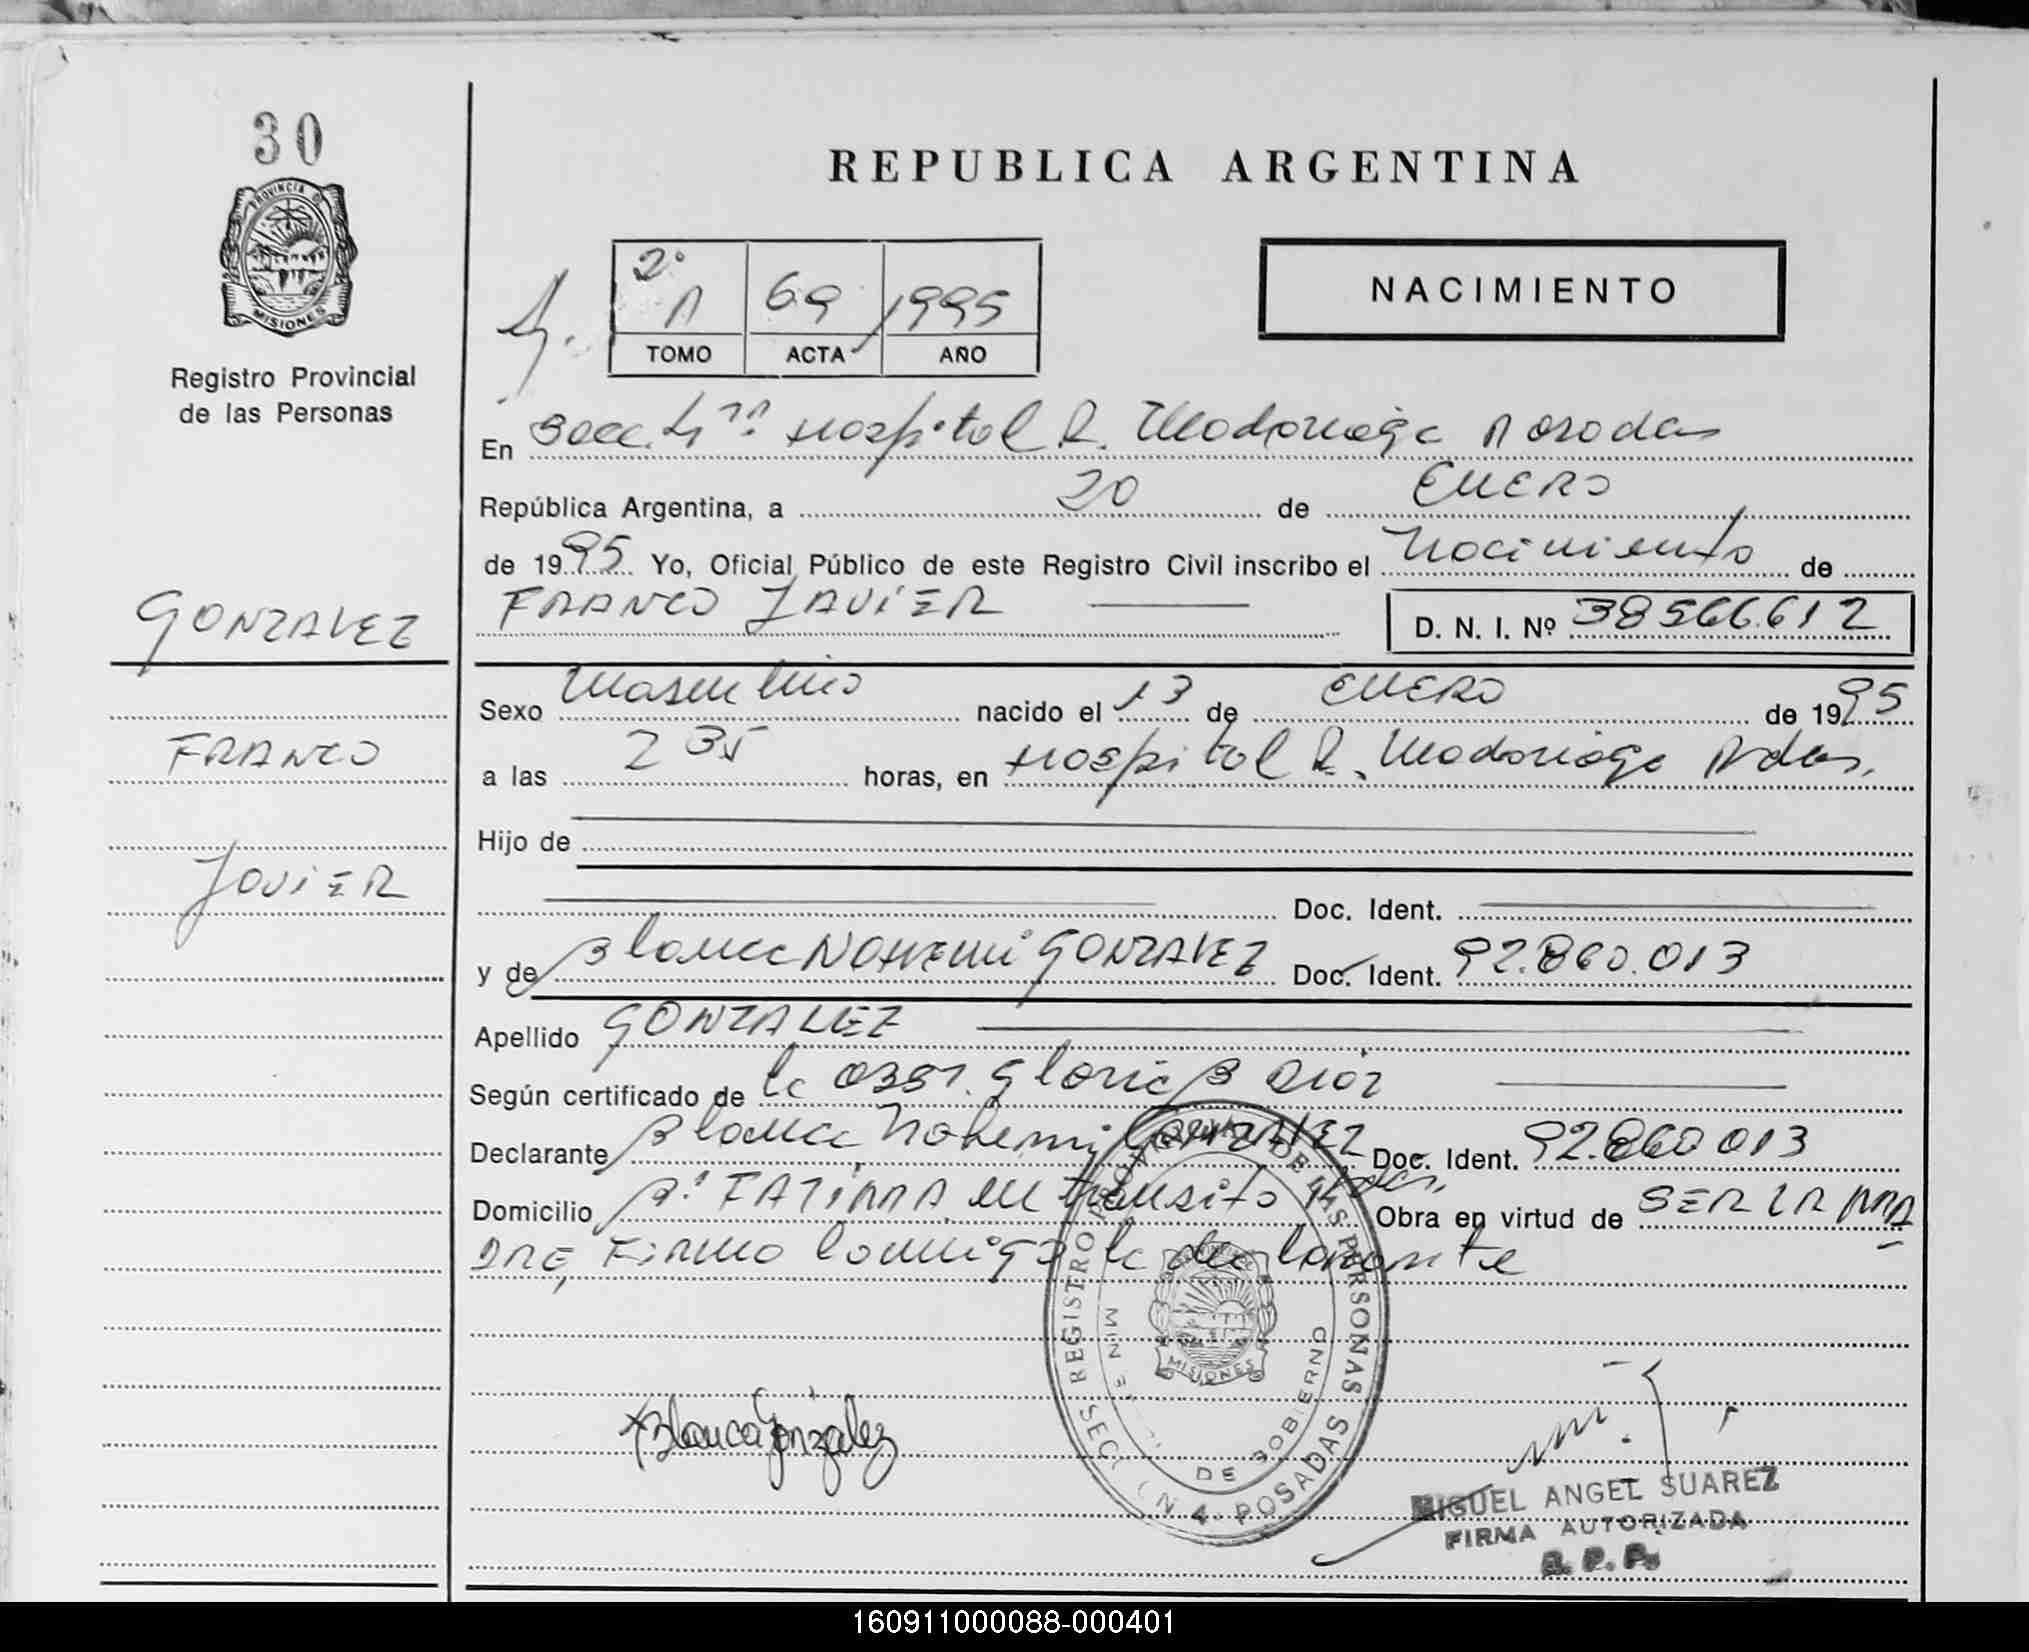 30
PROVINCIA DE
MISIONES
Registro Provincial
de las Personas
GONZALEZ
FRANCO
JAVIER
REPUBLICA ARGENTINA
2º
A 69 1995
TOMO ACTA AÑO
NACIMIENTO
En Secc. 4ª Hospital R. Madariaga Posadas
República Argentina, a 20 de ENERO
de 1995 Yo, Oficial Público de este Registro Civil inscribo el Nacimiento de
FRANCO JAVIER
D. N. I. Nº 38566.612
Sexo Masculino nacido el 13 de ENERO de 1995
a las 2 35 horas, en Hospital R. Madariaga Pdas.
Hijo de
Doc. Ident.
y de Blanca NOHEMI GONZALEZ Doc. Ident. 92.860.013
Apellido GONZALEZ
Según certificado de la Obst. Gloria B Diaz
Declarante Blanca Nohemi GONZALEZ Doc. Ident. 92.860 013
Domicilio Bº FATIMA en transito Pdas, Obra en virtud de SER LA MA
DRE, Firma conmigo la declarante
REGISTRO PROVINCIAL DE LAS PERSONAS
MISIONES
DE GOBIERNO
SECC. N 4. POSADAS
Blanca González
MIGUEL ANGEL SUAREZ
FIRMA AUTORIZADA
R. P. P.
160911000088-000401